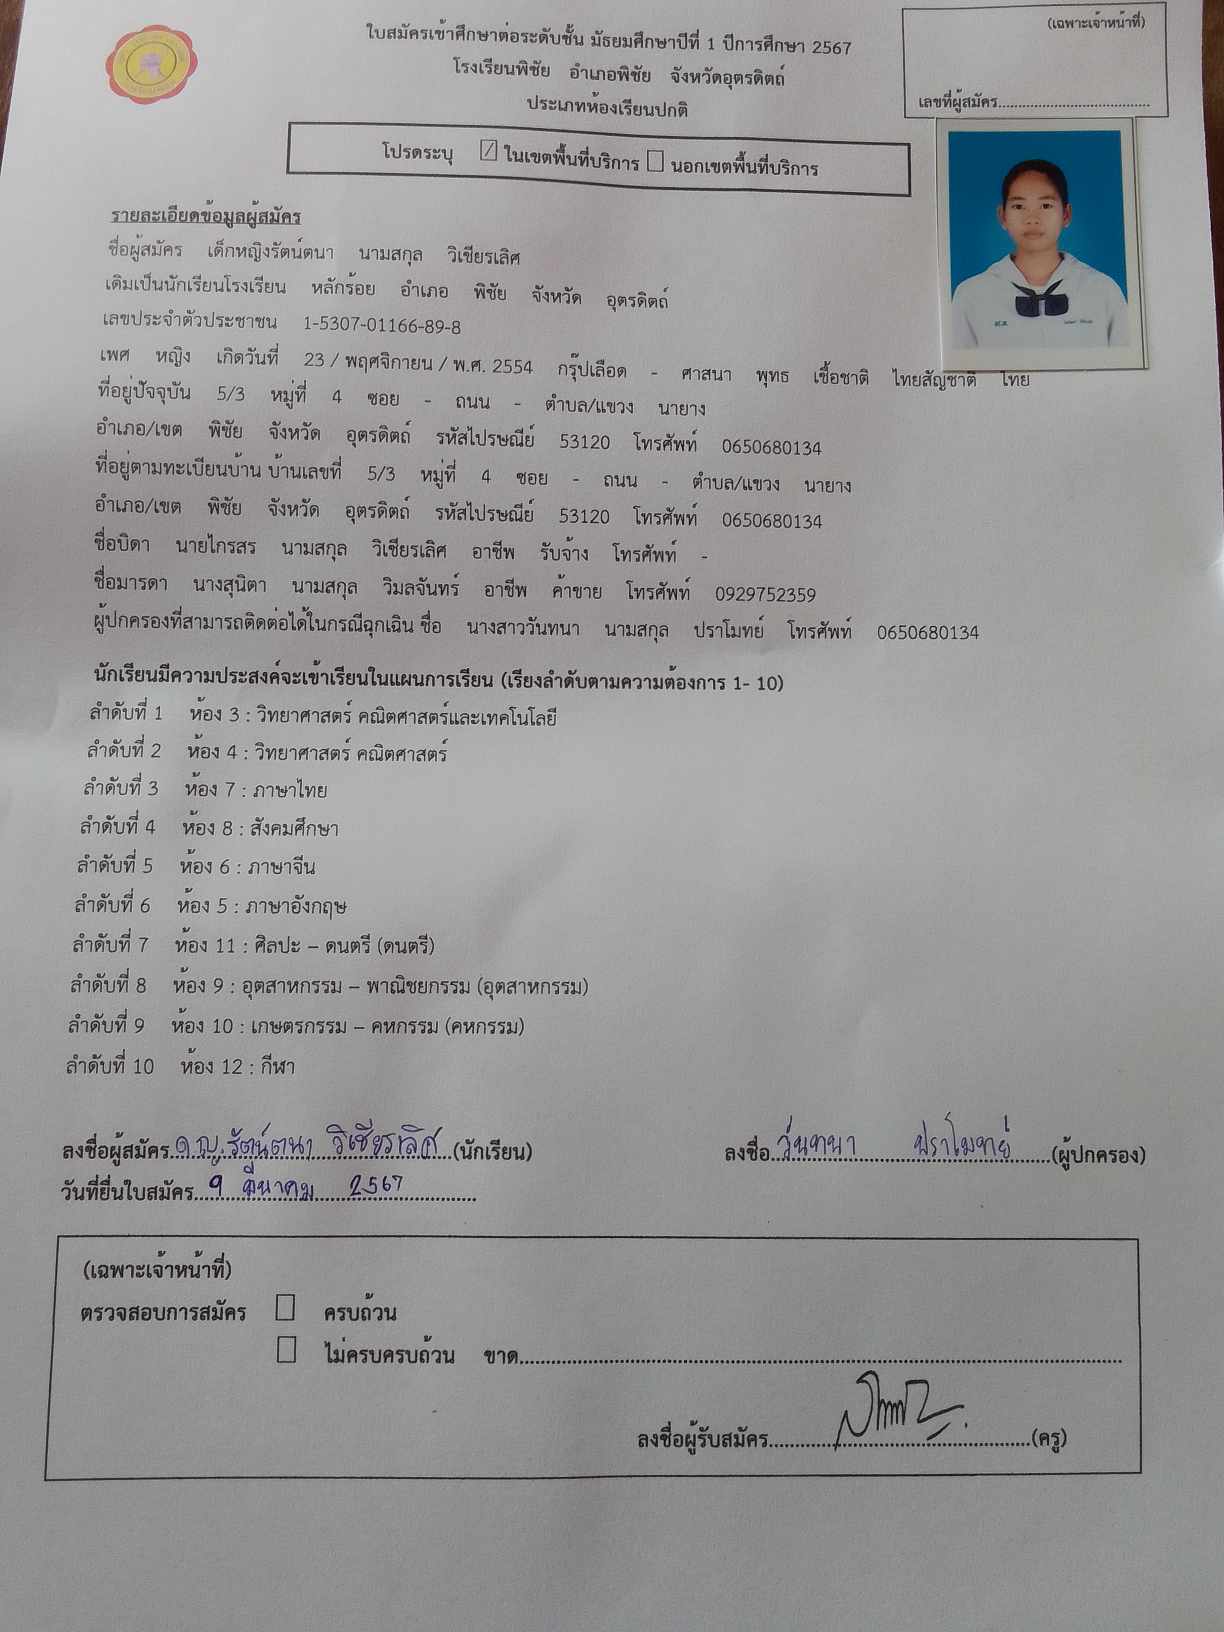 ใบสมัครเข้าศึกษาต่อระดับชั้น มัธยมศึกษาปีที่ 1 ปีการศึกษา 2567
(เฉพาะเจ้าหน้าที่)
โรงเรียนพิชัย อำเภอพิชัย จังหวัดอุตรดิตถ์
ประเภทห้องเรียนปกติ
เลขที่ผู้สมัคร....................................
โปรดระบุ ☑ ในเขตพื้นที่บริการ ☐ นอกเขตพื้นที่บริการ
รายละเอียดข้อมูลผู้สมัคร
ชื่อผู้สมัคร เด็กหญิงรัตน์ตนา นามสกุล วิเชียรเลิศ
เดิมเป็นนักเรียนโรงเรียน หลักร้อย อำเภอ พิชัย จังหวัด อุตรดิตถ์
เลขประจำตัวประชาชน 1-5307-01166-89-8
เพศ หญิง เกิดวันที่ 23 / พฤศจิกายน / พ.ศ. 2554 กรุ๊ปเลือด - ศาสนา พุทธ เชื้อชาติ ไทยสัญชาติ ไทย
ที่อยู่ปัจจุบัน 5/3 หมู่ที่ 4 ซอย - ถนน - ตำบล/แขวง นายาง
อำเภอ/เขต พิชัย จังหวัด อุตรดิตถ์ รหัสไปรษณีย์ 53120 โทรศัพท์ 0650680134
ที่อยู่ตามทะเบียนบ้าน บ้านเลขที่ 5/3 หมู่ที่ 4 ซอย - ถนน - ตำบล/แขวง นายาง
อำเภอ/เขต พิชัย จังหวัด อุตรดิตถ์ รหัสไปรษณีย์ 53120 โทรศัพท์ 0650680134
ชื่อบิดา นายไกรสร นามสกุล วิเชียรเลิศ อาชีพ รับจ้าง โทรศัพท์ -
ชื่อมารดา นางสุนิตา นามสกุล วิมลจันทร์ อาชีพ ค้าขาย โทรศัพท์ 0929752359
ผู้ปกครองที่สามารถติดต่อได้ในกรณีฉุกเฉิน ชื่อ นางสาววันทนา นามสกุล ปราโมทย์ โทรศัพท์ 0650680134
นักเรียนมีความประสงค์จะเข้าเรียนในแผนการเรียน (เรียงลำดับตามความต้องการ 1- 10)
ลำดับที่ 1 ห้อง 3 : วิทยาศาสตร์ คณิตศาสตร์และเทคโนโลยี
ลำดับที่ 2 ห้อง 4 : วิทยาศาสตร์ คณิตศาสตร์
ลำดับที่ 3 ห้อง 7 : ภาษาไทย
ลำดับที่ 4 ห้อง 8 : สังคมศึกษา
ลำดับที่ 5 ห้อง 6 : ภาษาจีน
ลำดับที่ 6 ห้อง 5 : ภาษาอังกฤษ
ลำดับที่ 7 ห้อง 11 : ศิลปะ – ดนตรี (ดนตรี)
ลำดับที่ 8 ห้อง 9 : อุตสาหกรรม – พาณิชยกรรม (อุตสาหกรรม)
ลำดับที่ 9 ห้อง 10 : เกษตรกรรม – คหกรรม (คหกรรม)
ลำดับที่ 10 ห้อง 12 : กีฬา
ลงชื่อผู้สมัคร ด.ญ.รัตน์ตนา วิเชียรเลิศ (นักเรียน) ลงชื่อ วันทนา ปราโมทย์ (ผู้ปกครอง)
วันที่ยื่นใบสมัคร 9 มีนาคม 2567
(เฉพาะเจ้าหน้าที่)
ตรวจสอบการสมัคร ☐ ครบถ้วน
☐ ไม่ครบครบถ้วน ขาด....................................
ลงชื่อผู้รับสมัคร....................................(ครู)